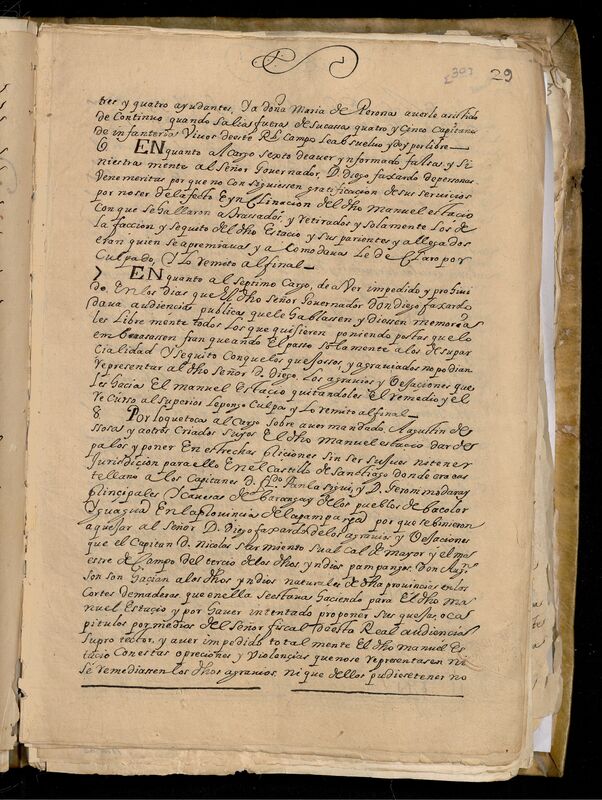 307 29
tres y quatro ayudantes, Ya doña Maria de Perona averle asistido
de Continuo quando salia fuera de su casa quatro y Cinco Capitanes
de infanteria Vivos deeste Rl. Campo le absuelvo y doy por libre
6 EN quanto al Cargo Sexto de aver ynformado falsa, y Si
niestra mente al Señor Governador, D. Diego faxardo de personas
Venemeritas porque no Consiguiessen gratificaçion de sus servicios
por no ser de la fecto E yn Clinacion del dho manuel estacio
Con que se hallaron atrasados, y Retirados y solamente Los de
la faccion y sequito del dho Estacio y sus parientes y allegados
eran quien se apremiavan y acomodavan Le de Claro por
Culpado, y Lo remito al final
7 EN quanto al septimo Cargo, de aver impedido y prohivi
do, En los dias que El dho Señor Governador don diego faxardo
dava audiencias publicas que le hablassen y diessen memoria
les Libre mente todos Los que quisieren poniendo postas que lo
embarasassen franqueando El passo solamente a los de su par
Cialidad Y sequito Conque los quexosos, y agraviados no podian
Representar al dho Señor D. Diego, Los agravios y Vexaciones que
les haçia El manuel Estacio quitandoles El remedio y el
Recurso al superior Le pongo Culpa y Lo remito al final
8 Por lo que toca al Cargo sobre aver mandado, Augustin de
ssosa y a otros Criados suyos El dho manuel estacio dar de
palos y poner En estrechas priciones sin ser Jues ni tener
Jurisdiçion para ello En el Castillo de Santhiago donde era cas
tellano a los Capitanes D. y D. Geronimo
principales Y Cavesas de barangay de los pueblos de bacolor
Y guagua En la provincia de la pampanga por que se binieron
a quexar al Señor D. Diego faxardo de los agravios y Vexaciones
que el Capitan D. Nicolas sarmiento su al Calde mayor y el maes
tre de Campo del tercio de los dhos yndios pampangos, Don
son son haçian a los dhos yndios naturales de dha provincia en las
Cortes de maderas que en ella se estavan haciendo para El dho ma
nuel Estacio y por haver intentado proponer sus quexas, o ca
pitulos por medio del Señor fiscal de esta Real audiencia
Su protector, y aver impedido totalmente El dho manuel Es
tacio Con estas opreciones y Violençias que no se representasen ni
se remediassen Los dhos agravios, ni que dellos pudiese tener no